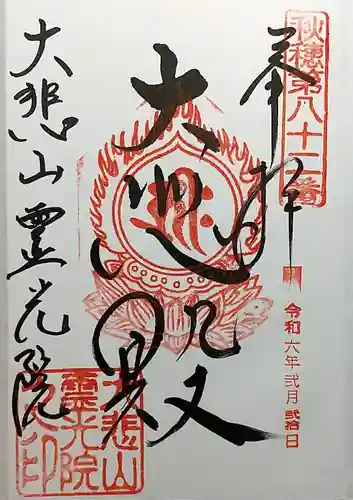 奉拝
秋穂第八十二番
令和六年弐月弐拾日
大悲殿
大悲山霊光院
大悲山
霊光院
之印